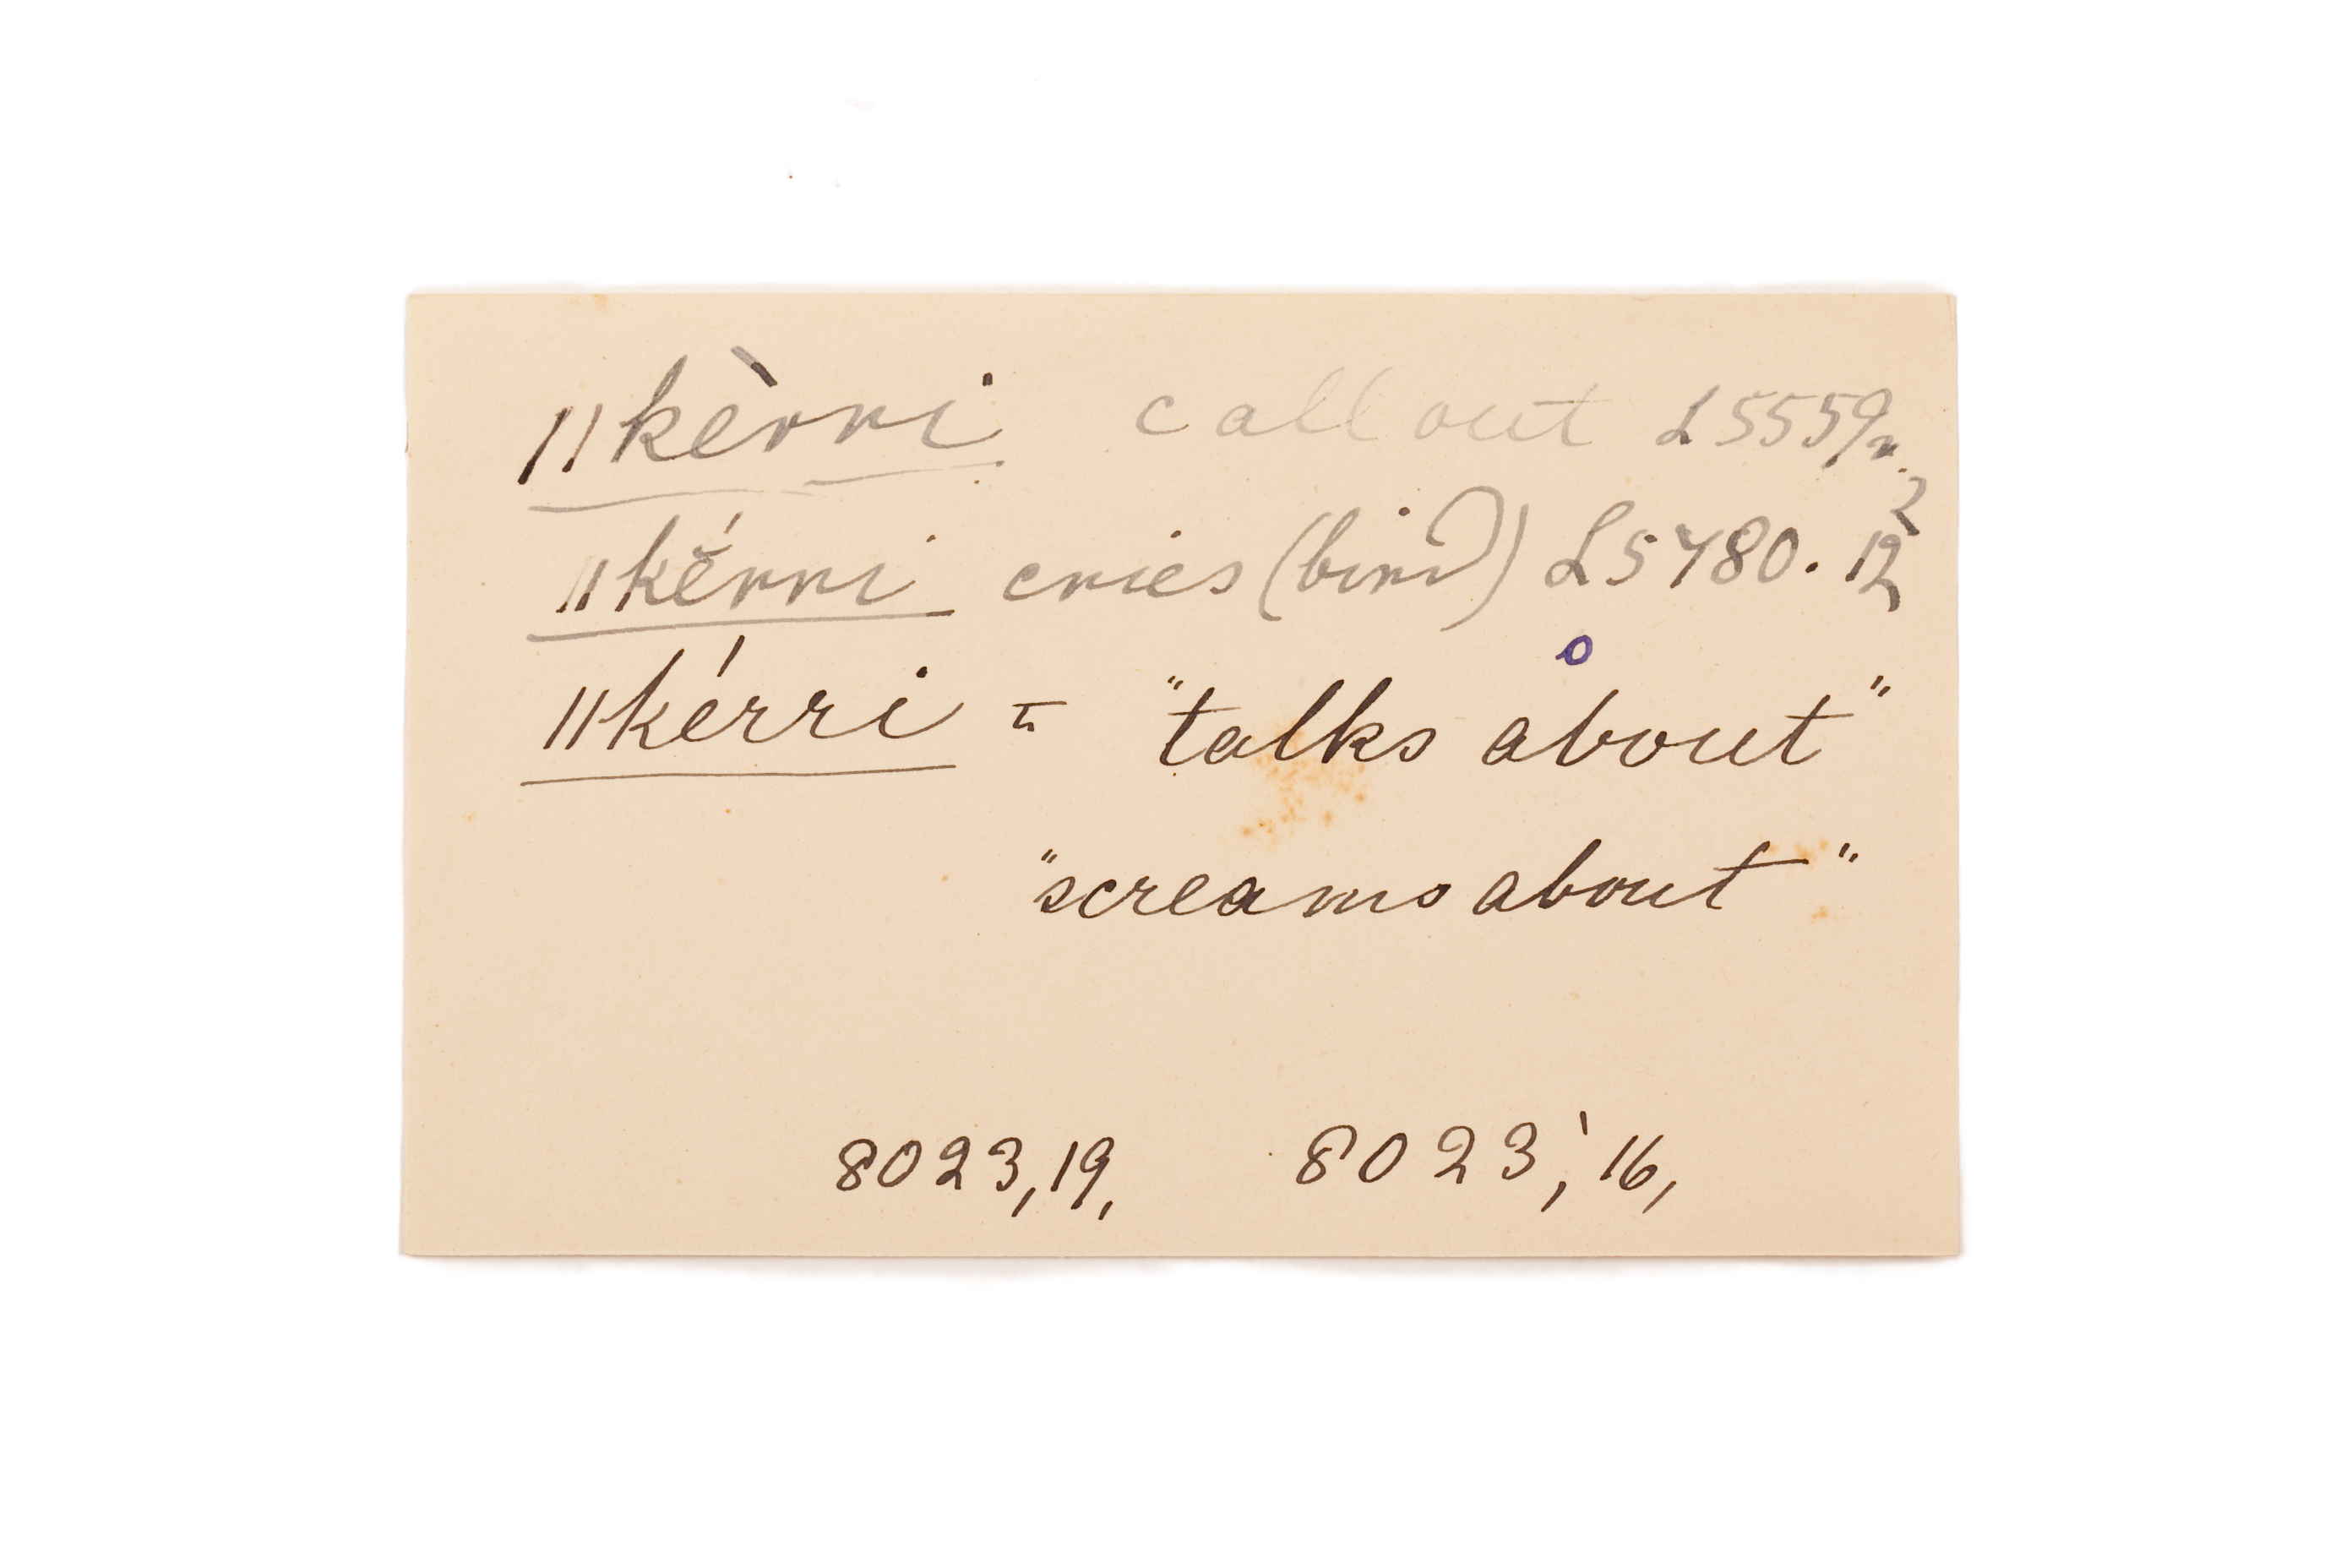 ||kèrri call out L5559r.
||kĕ́rri cries (bird) L5780. 12
||kérri = "talks about"
"screams about"
8023,19, 8023,' 16,